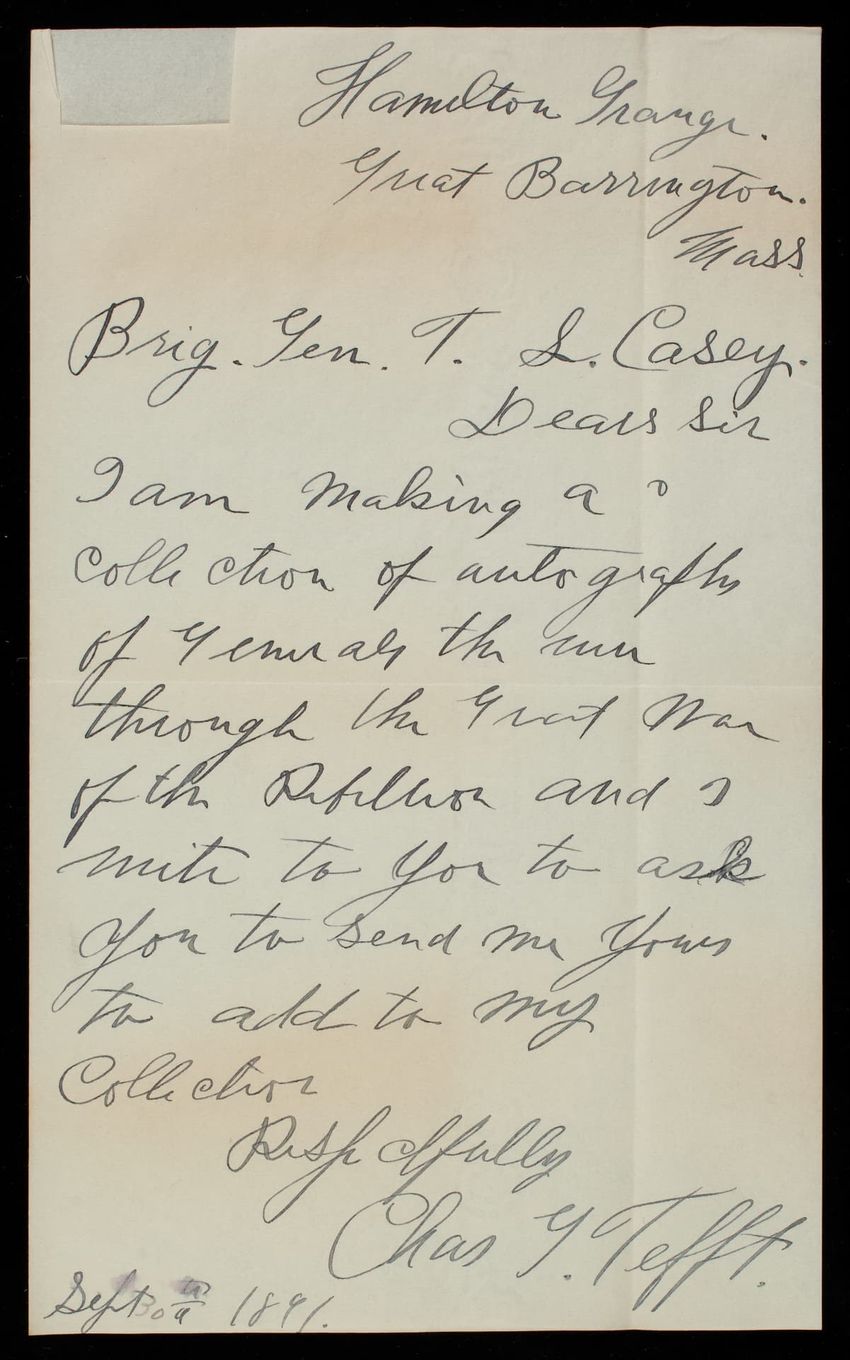 Hamilton Grange.
Great Barrington.
Mass.
Brig. Gen. T. L. Casey.
Dear Sir
I am making a
collection of autographs
of Generals the run
through the Great War
of the Rebellion and I
write to you to ask
you to send me yours
to add to my
Collection
Respectfully
Chas G. Tefft.
Sept 1891.